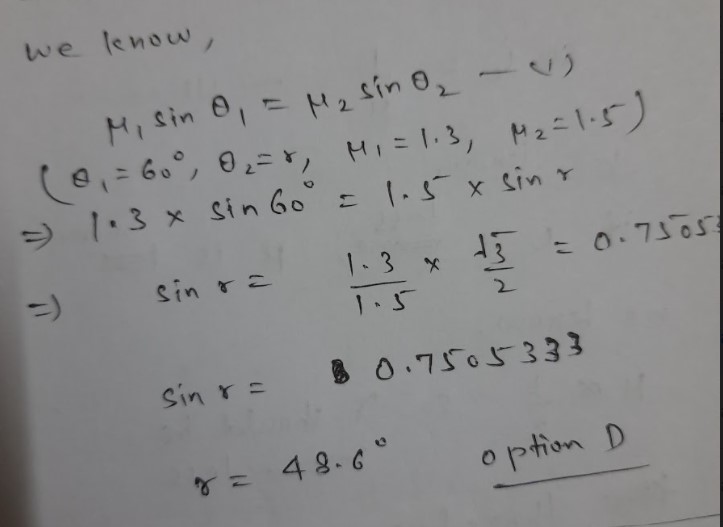 we know,
μ₁ sin θ₁ = μ₂ sin θ₂ — (1)
(θ₁ = 60°, θ₂ = r, μ₁ = 1.3, μ₂ = 1.5)
⇒ 1.3 × sin 60° = 1.5 × sin r
⇒ sin r = 1.3/1.5 × √3/2 = 0.75053
sin r = 0.7505333
r = 48.6° option D